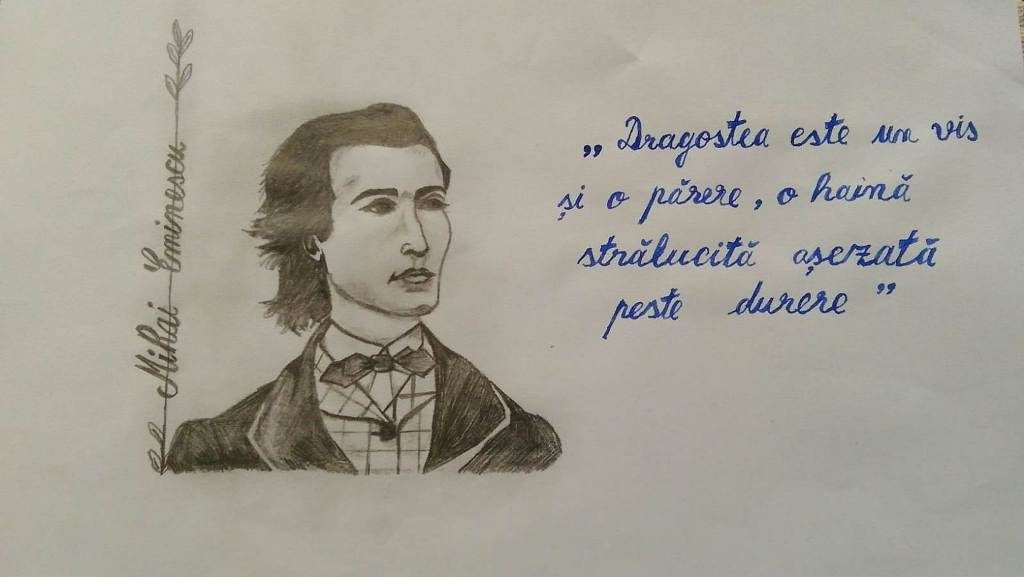 Mihai Eminescu
„Dragostea este un vis
și o părere, o haină
strălucită așezată
peste durere”